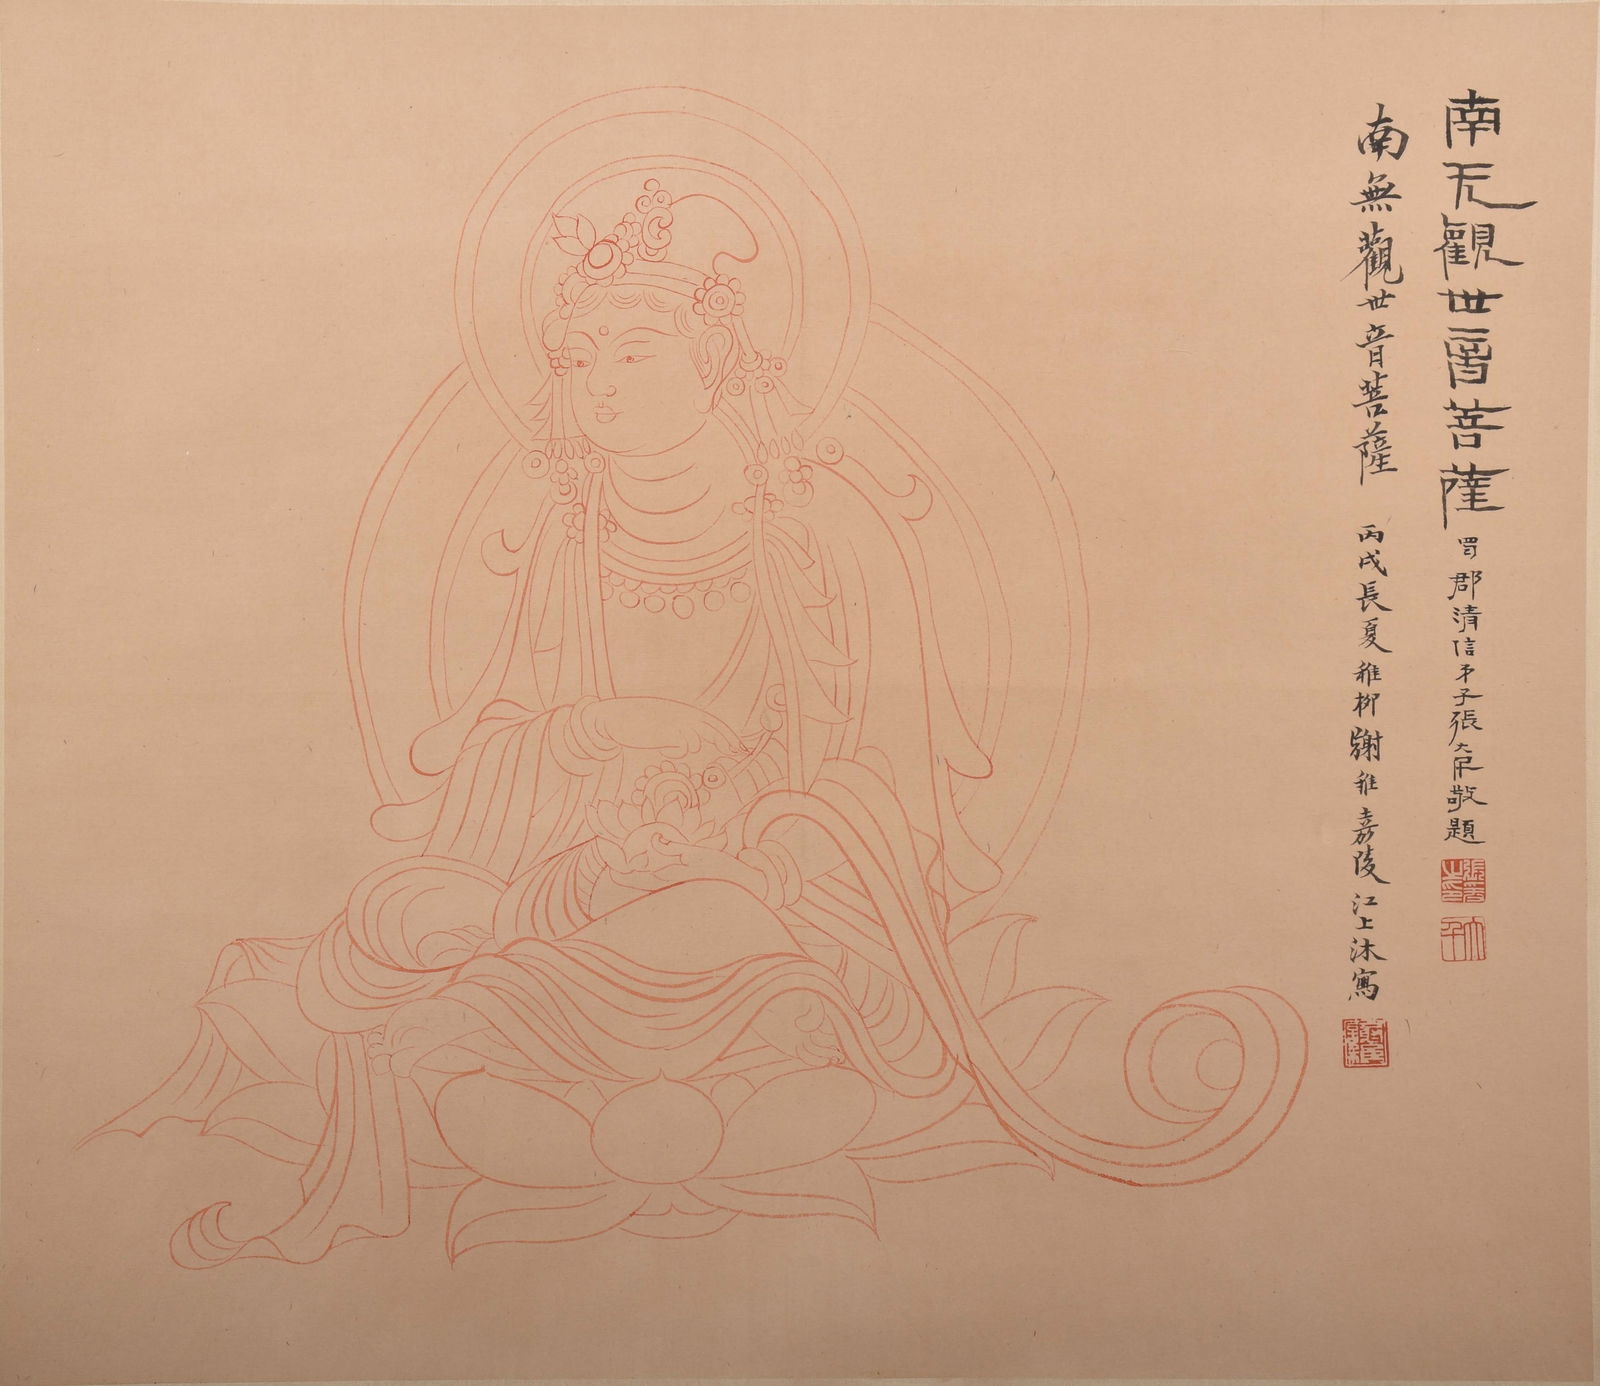 南无觀世音菩薩 蜀郡清信弟子張大千敬題
張爰之印
大千
南無觀世音菩薩 丙戌長夏稚柳謝稚嘉陵江上沐寫